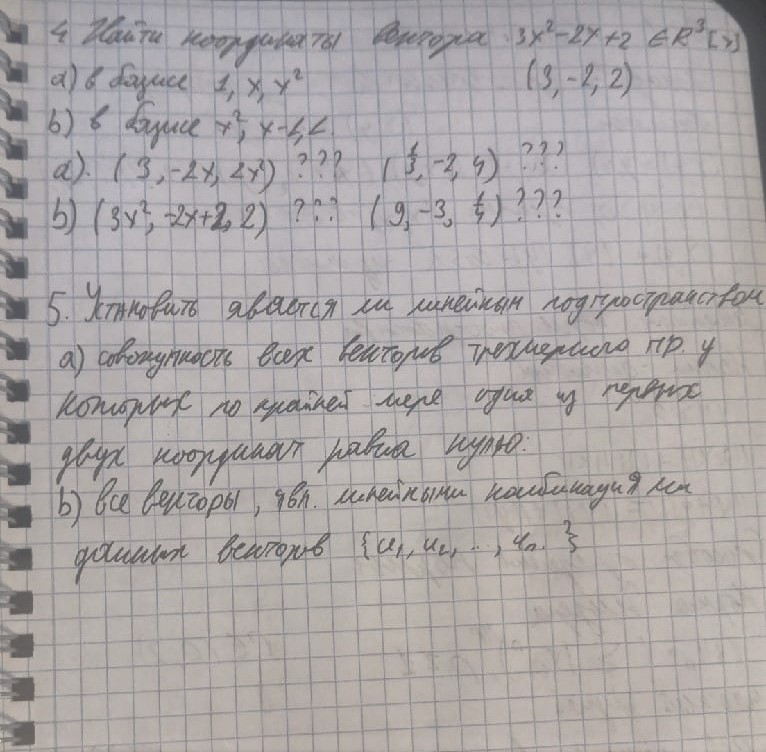 4 Найти координаты вектора 3x²-2x+2 ∈ R³[x]
a) в базисе 1, x, x² (3, -2, 2)
b) в базисе x², x-1, 1
a). (3, -2x, 2x²) ??? (1/3, -2, 4) ???
b) (3x², -2x+2, 2) ??? (9, -3, 1/4) ???
5. Установить явается ли линейным подпространством
a) совокупность всех векторов трехмерного пр. у
которых по крайней мере одна из первых
двух координат равна нулю.
b) все векторы, явл. линейными комбинациями
данных векторов {u₁, u₂, ..., uₙ.}